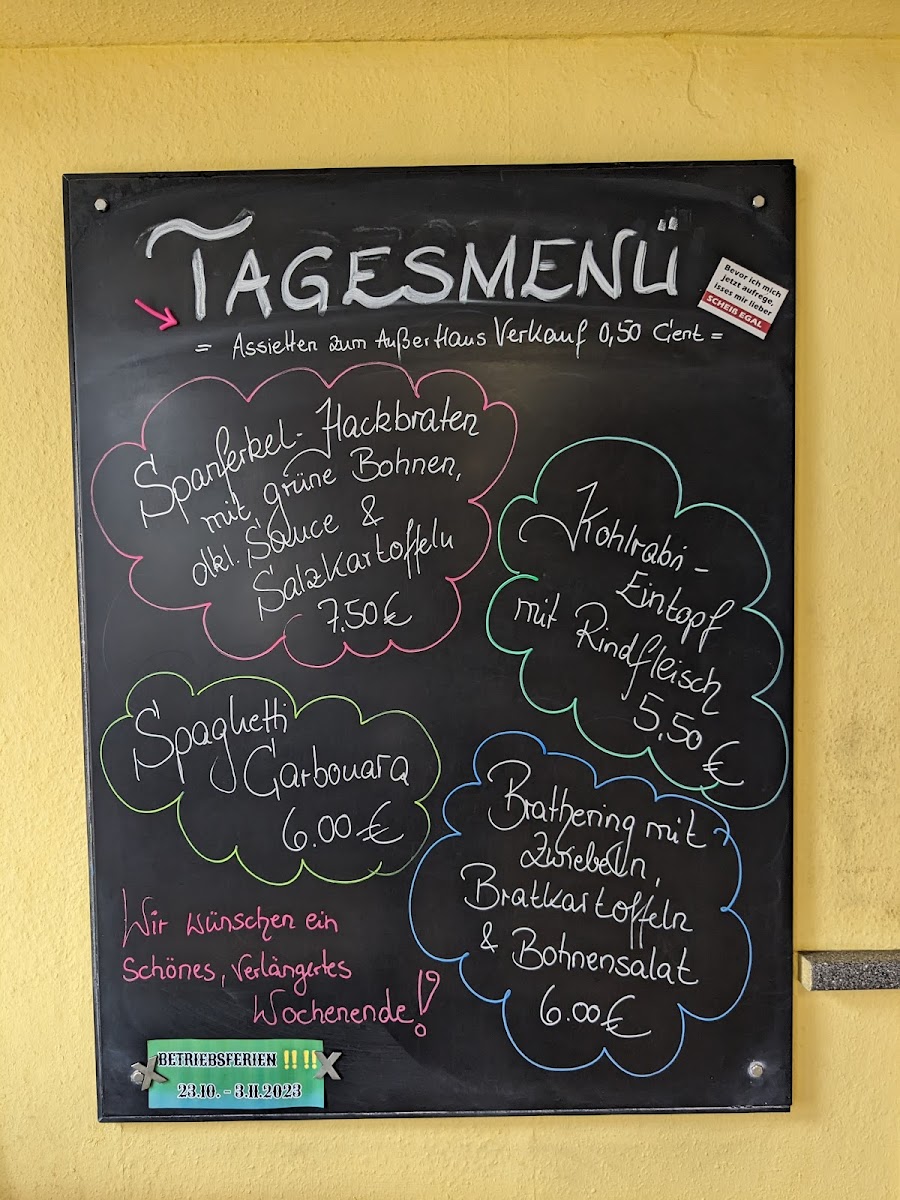 TAGESMENÜ
Bevor ich mich
jetzt aufrege,
isses mir lieber
SCHEIß EGAL
= Assietten zum Außer Haus Verkauf 0,50 Cent =
Spanferkel-Hackbraten
mit grüne Bohnen,
dkl. Sauce &
Salzkartoffeln
7,50 €
Kohlrabi-
Eintopf
mit Rindfleisch
5,50 €
Spaghetti
Carbonara
6.00 €
Brathering mit
Zwiebeln,
Bratkartoffeln
& Bohnensalat
6.00 €
Wir wünschen ein
schönes, verlängertes
Wochenende!
BETRIEBSFERIEN !! !!
23.10. - 3.11.2023